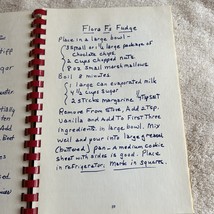 Flora F's Fudge
Place in a large bowl -
3 small or 1 1/2 large package of
chocolate chips
2 Cups chopped nuts
8 oz Small marshmallows
Boil 8 minutes
1 large can evaporated milk
4 1/2 Cups sugar
2 Sticks margarine
Remove From stove, Add 2 tsp.
Vanilla and Add To First Three
ingredients in large bowl. Mix
well and pour into large
(buttered) pan - a medium cookie
sheet with sides is good. Place
in refrigerator; Mark in squares.